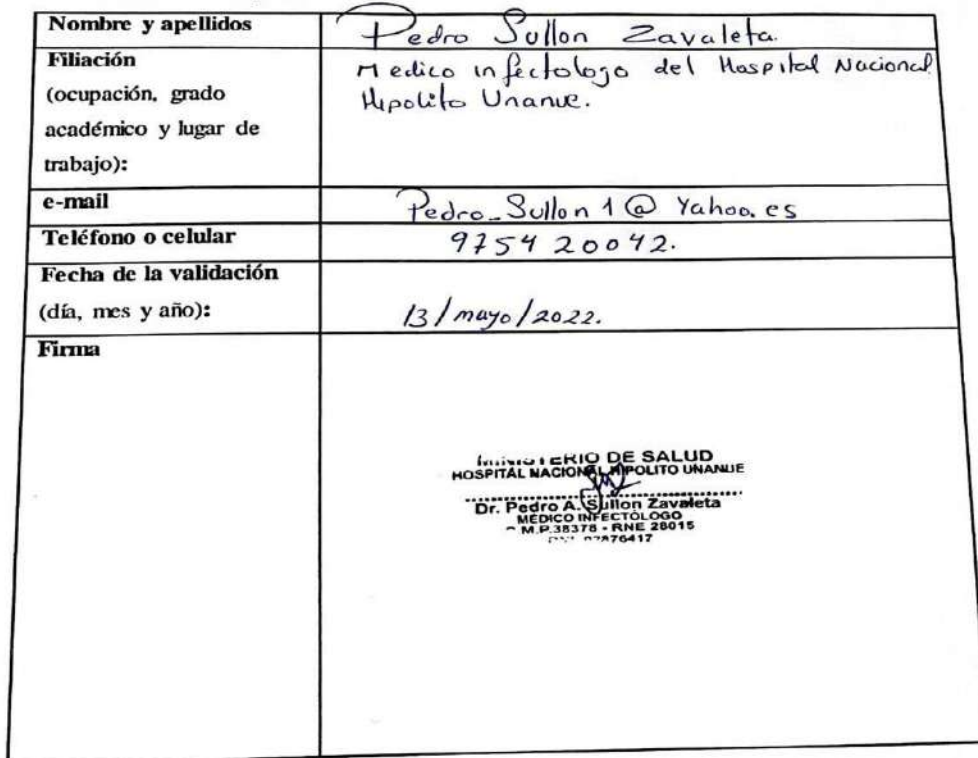 Nombre y apellidos
Pedro Sullon Zavaleta.
Filiación
(ocupación, grado
académico y lugar de
trabajo):
Medico infectologo del Hospital Nacional
Hipolito Unanue.
e-mail
Pedro_Sullon1@Yahoo.es
Teléfono o celular
975420042.
Fecha de la validación
(día, mes y año):
13/mayo/2022.
Firma
MINISTERIO DE SALUD
HOSPITAL NACIONAL HIPOLITO UNANUE
Dr. Pedro A. Sullon Zavaleta
MÉDICO INFECTÓLOGO
M.P.38378 - RNE 28015